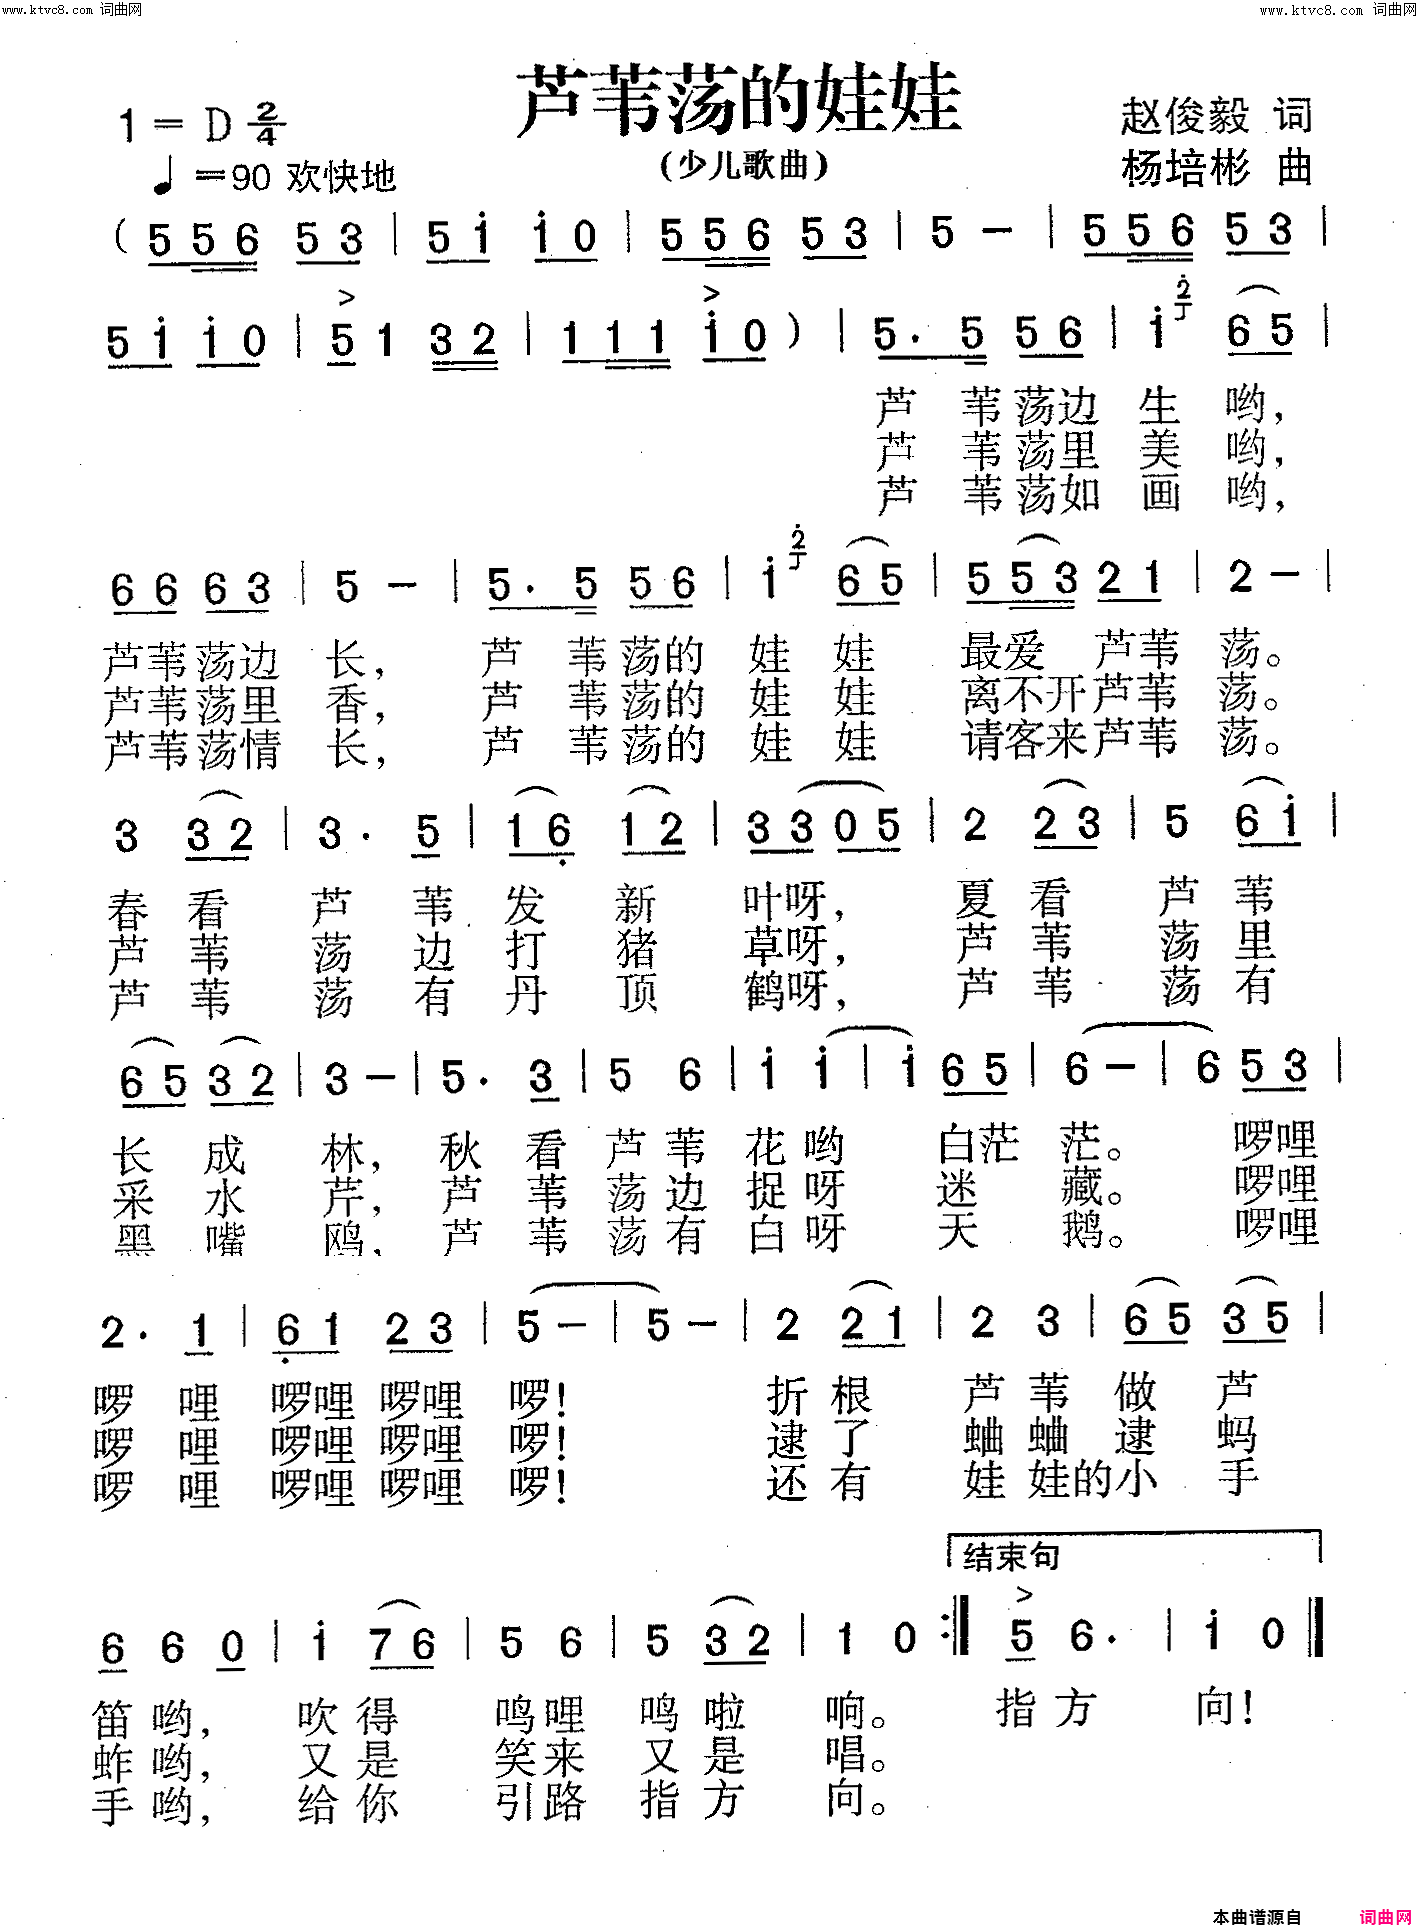 www.ktvc8.com 词曲网 www.ktvc8.com 词曲网
芦苇荡的娃娃
1=D 2/4 赵俊毅 词
(少儿歌曲)
♩=90 欢快地 杨培彬 曲
( 5 5 6 5 3 | 5 i i 0 | 5 5 6 5 3 | 5 - | 5 5 6 5 3 |
5 i i 0 | 5 1 3 2 | 1 1 1 i 0 ) | 5. 5 5 6 | i 2 6 5 |
芦 苇荡边 生 哟,
芦 苇荡里 美 哟,
芦 苇荡如 画 哟,
6 6 6 3 | 5 - | 5. 5 5 6 | i 2 6 5 | 5 5 3 2 1 | 2 - |
芦苇荡边 长, 芦 苇荡的 娃 娃 最爱 芦苇 荡。
芦苇荡里 香, 芦 苇荡的 娃 娃 离不开芦苇 荡。
芦苇荡情 长, 芦 苇荡的 娃 娃 请客来芦苇 荡。
3 3 2 | 3. 5 | 1 6 1 2 | 3 3 0 5 | 2 2 3 | 5 6 i |
春 看 芦 苇 发 新 叶呀, 夏 看 芦 苇
芦 苇 荡 边 打 猪 草呀, 芦 苇 荡 里
芦 苇 荡 有 丹 顶 鹤呀, 芦 苇 荡 有
6 5 3 2 | 3 - | 5. 3 | 5 6 | i i | i 6 5 | 6 - | 6 5 3 |
长 成 林, 秋 看 芦 苇 花 哟 白茫 茫。 啰哩
采 水 芹, 芦 苇 荡 边 捉 呀 迷 藏。 啰哩
黑 嘴 鸥, 芦 苇 荡 有 白 呀 天 鹅。 啰哩
2. 1 | 6 1 2 3 | 5 - | 5 - | 2 2 1 | 2 3 | 6 5 3 5 |
啰 哩 啰哩 啰哩 啰! 折 根 芦 苇 做 芦
啰 哩 啰哩 啰哩 啰! 逮 了 蛐 蛐 逮 蚂
啰 哩 啰哩 啰哩 啰! 还 有 娃 娃的小 手
结束句
6 6 0 | i 7 6 | 5 6 | 5 3 2 | 1 0 :| 5 6. | i 0 |
笛 哟, 吹 得 鸣 哩 鸣 啦 响。 指 方 向!
蚱 哟, 又 是 笑 来 又 是 唱。
手 哟, 给 你 引 路 指 方 向。
本曲谱源自 词曲网